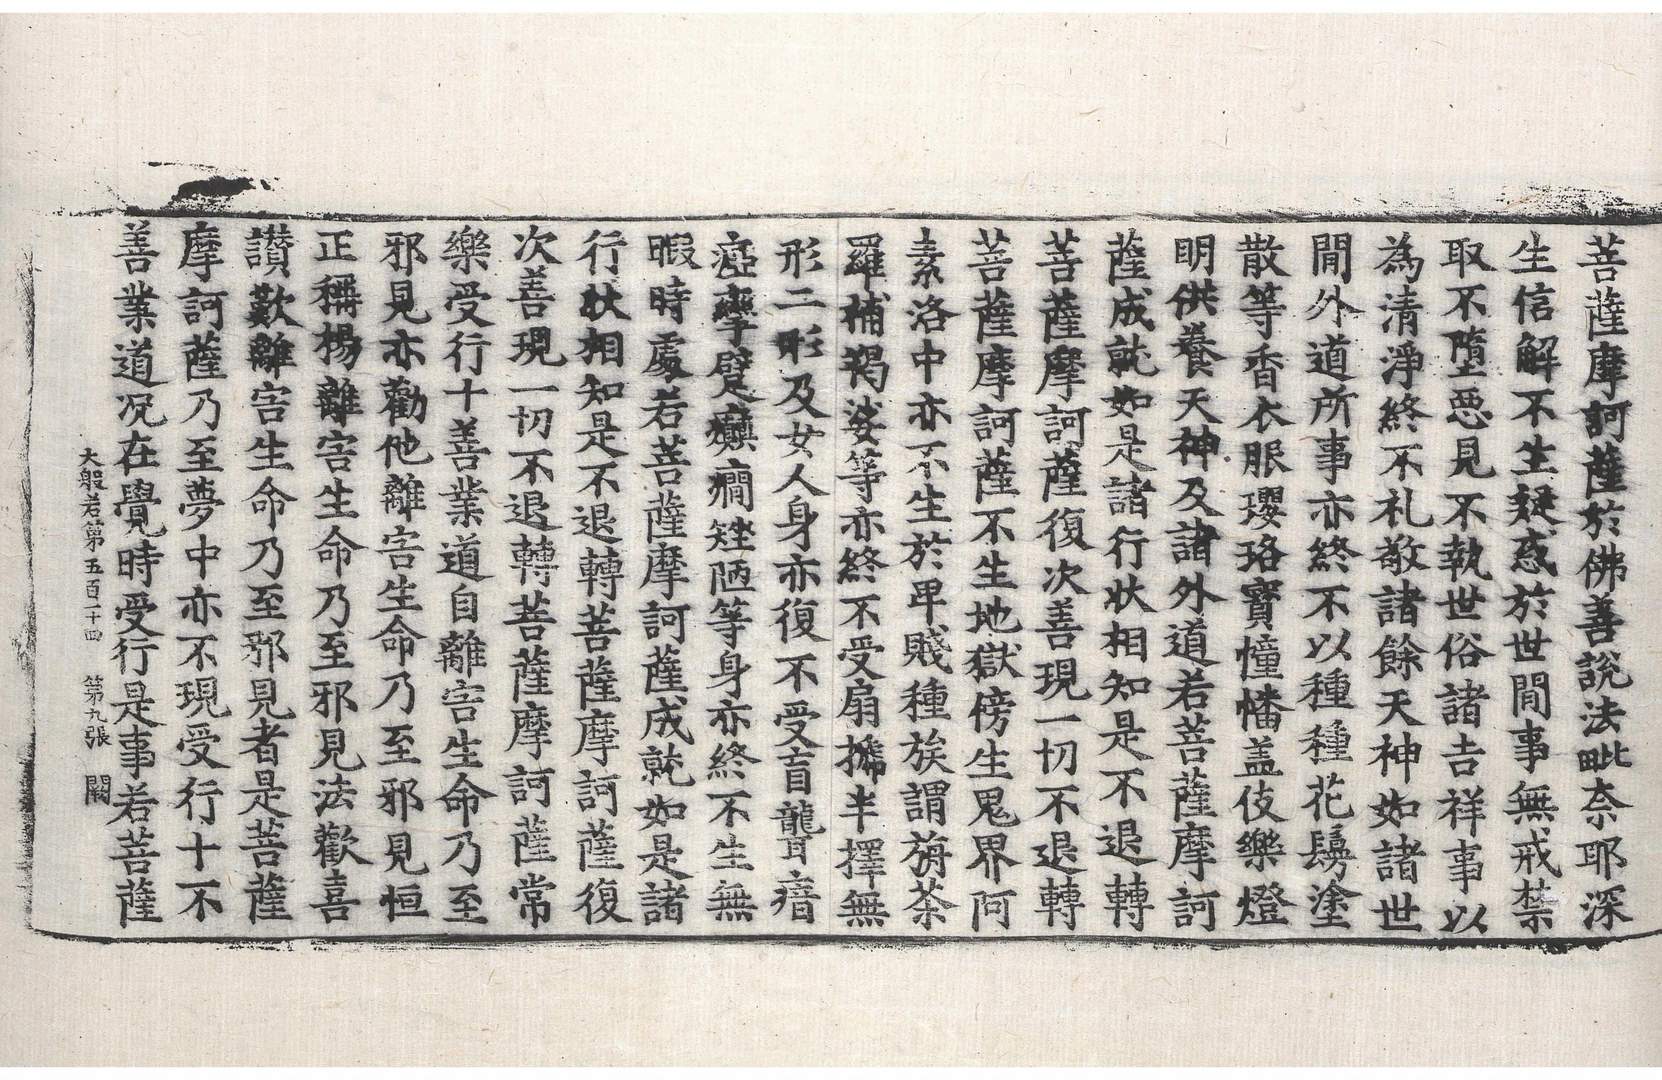 菩薩摩訶薩於佛善說法毗奈耶深
生信解不生疑惑於世間事無戒禁
取不墮惡見不執世俗諸吉祥事以
為清淨終不礼敬諸餘天神如諸世
間外道所事亦終不以種種花鬘塗
散等香衣服瓔珞寶幢幡盖伎樂燈
明供養天神及諸外道若菩薩摩訶
薩成就如是諸行狀相知是不退轉
菩薩摩訶薩復次善現一切不退轉
菩薩摩訶薩不生地獄傍生鬼界阿
素洛中亦不生於卑賤種族謂旃荼
羅補羯娑等亦終不受扇搋半擇無
形二形及女人身亦復不受盲聾瘖
瘂攣躄癲癇矬陋等身亦終不生無
暇時處若菩薩摩訶薩成就如是諸
行狀相知是不退轉菩薩摩訶薩復
次善現一切不退轉菩薩摩訶薩常
樂受行十善業道自離害生命乃至
邪見亦勸他離害生命乃至邪見恒
正稱揚離害生命乃至邪見法歡喜
讃歎離害生命乃至邪見者是菩薩
摩訶薩乃至夢中亦不現受行十不
善業道况在覺時受行是事若菩薩
大般若第五百一十四 第九張 闕